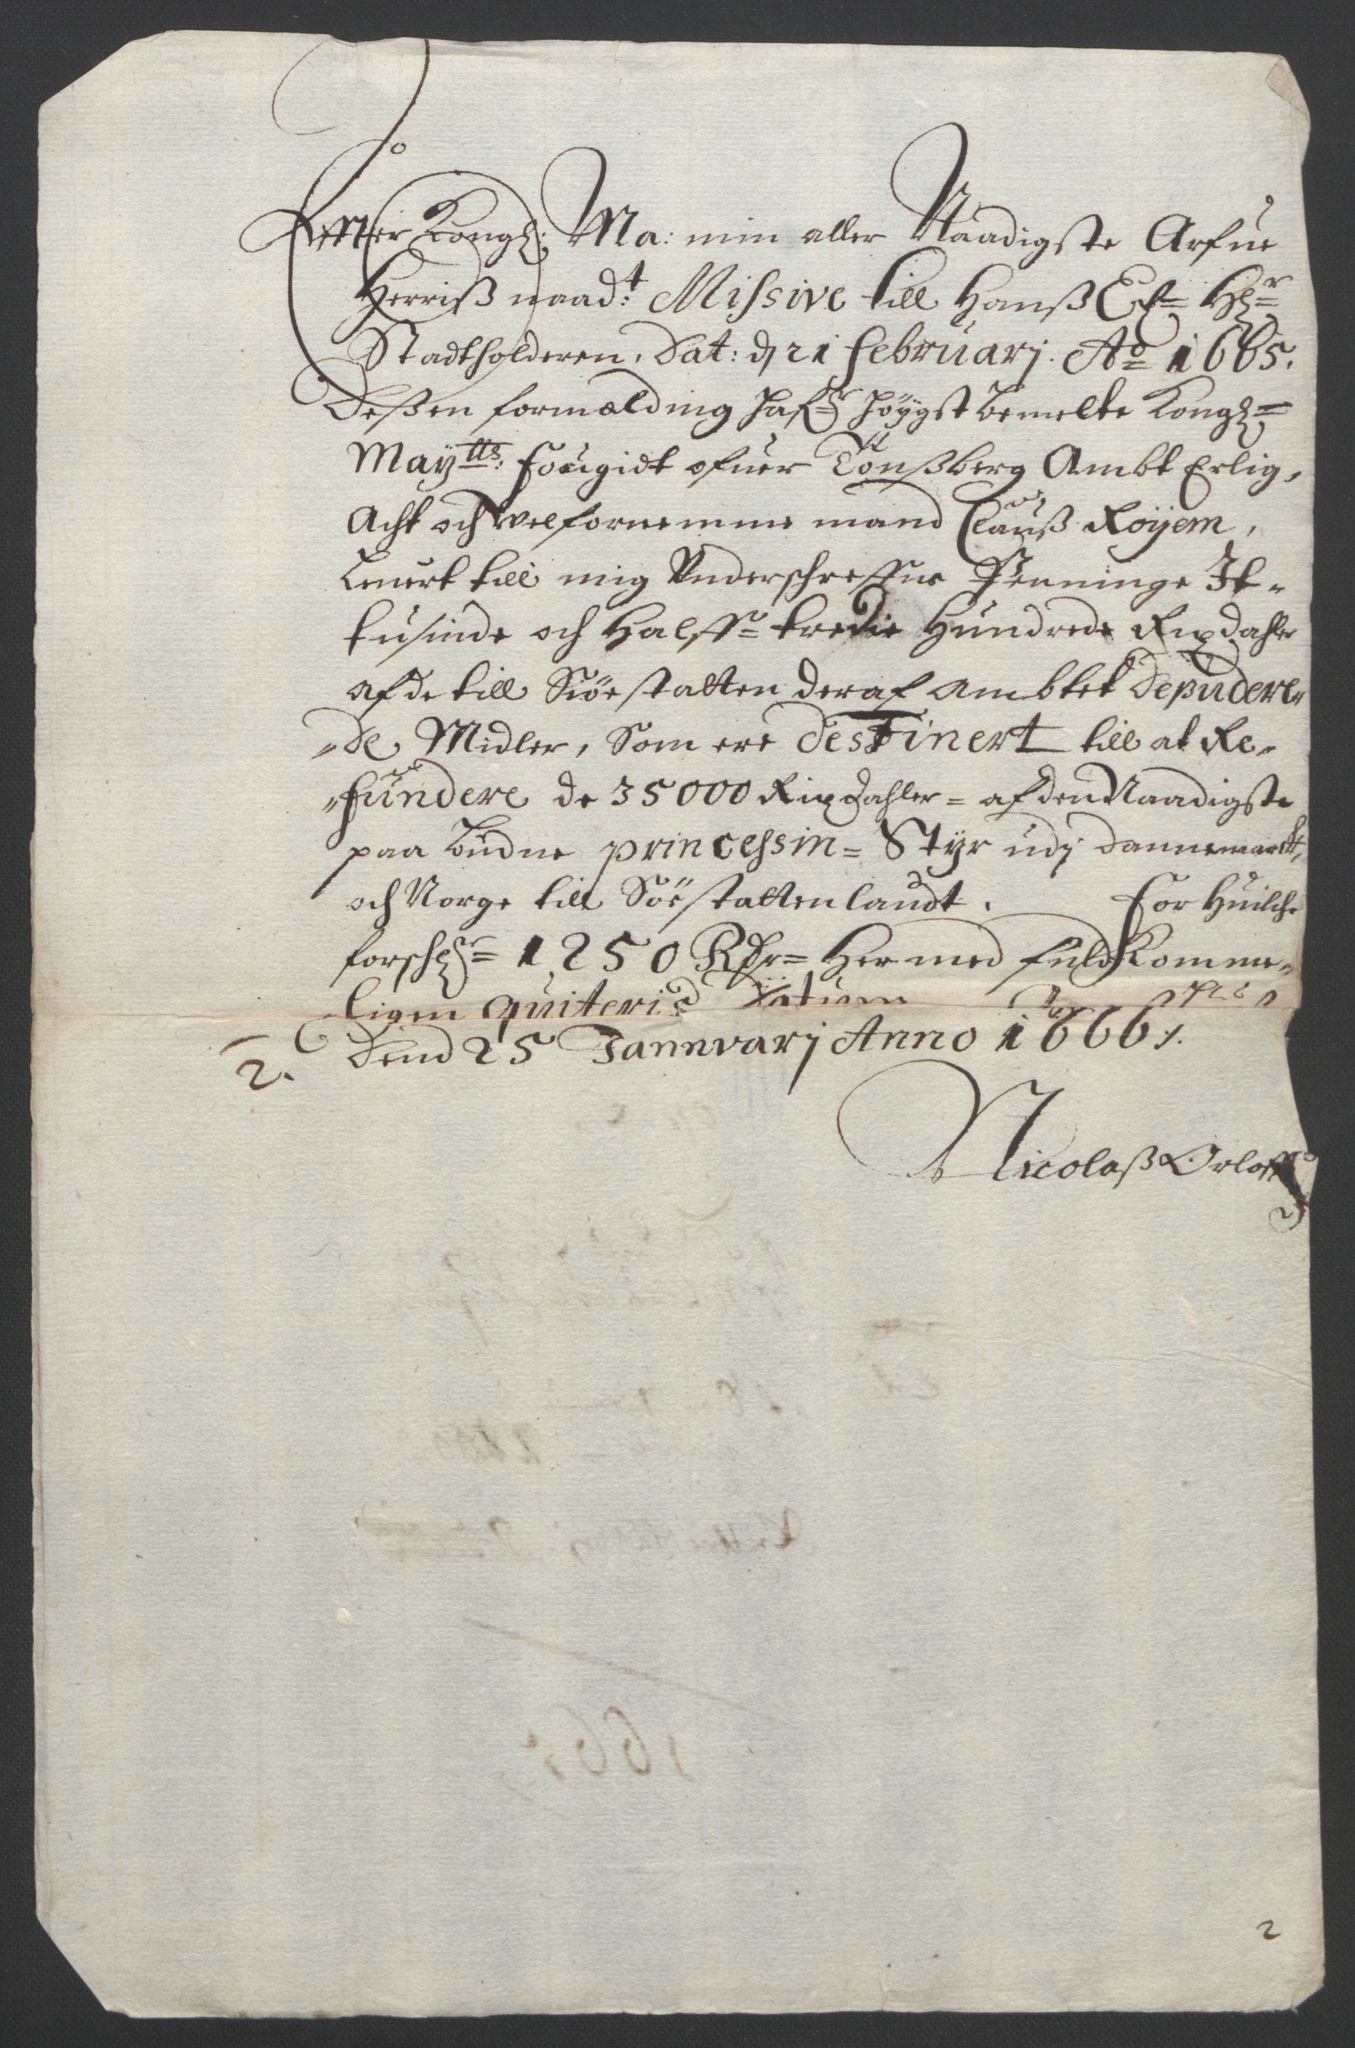 Effter Kongl: Ma: min aller Naadigste Arfue
Herriß naad:t Missive till Hanß Ex= Hr=
Stadtholderen, Dat: d 21 februarj. Ao 1665.
Deßen formælding hafr høygst bemelte Kongl=
Maytts: fougidt ofuer Tønßberg Ambt Erlig,
Acht och velfornemme mand Clauß Røyem,
Leuert till mig Underschreffne Penninge It=
tusinde och Halff= tredie Hundrede Rixdahler
af de till Siøestatten deraf Ambtet Deputere=
=de Midler, Som ere destinert till at Re=
=fundere de 35000 Rixdahler= af den Naadigste
paa budne princessin= Styr udj Dannemarck,
och Norge till Söestatten laudt. for Huilche
forschr= 1250 Rdr= Her med fuldkomme=
ligen quiteris Datum
2. Dend 25 Jannvarj Anno 1666.
Nicolaß Orloff
2